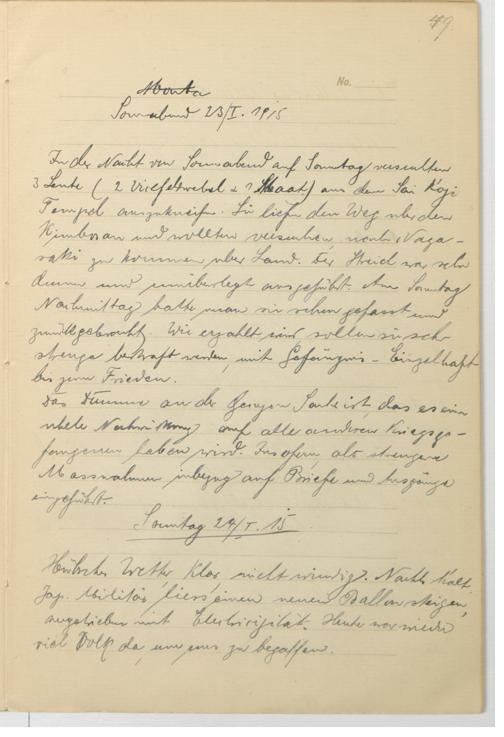 49.
No.
Monta
Sonnabend 23/I. 1915
In der Nacht von Sonnabend auf Sonntag versuchten
3 Leute (2 Vicefeldwebel u 1 Maat) aus dem Sai Koji
Tempel auszukneifen. Sie liefen den Weg über den
Kimbosan und wollten versuchen, nach Naga-
saki zu kommen über Land. Der Streich war sehr
dumm und unüberlegt ausgeführt. Am Sonntag
Nachmittag hatte man sie schon gefasst und
zurückgebracht. Wie erzählt wird sollen sie sehr
strenge bestraft werden, mit Gefängnis-Einzelhaft
bis zum Frieden.
Das Dumme an der ganzen Sache ist, das es eine
üble Nachwirkung auf alle anderen Kriegsge-
fangenen haben wird. Insofern, als strengere
Massnahmen inbezug auf Briefe und Ausgänge
eingeführt.
Sonntag 24/I. 15
Hübsches Wetter Klar, nicht windig. Nachts Kalt.
Jap. Militär liess einen neuen Ballon steigen,
angetrieben mit Electrizität. Heute war wieder
viel Volk da, um uns zu begaffen.